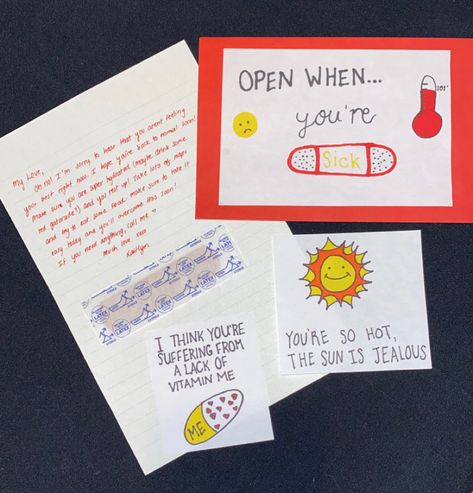 OPEN WHEN...
you're
Sick
101°
My Love,
Oh no! I'm sorry to hear that you aren't feeling
your best right now. I hope you're back to normal soon!
Make sure you are super hydrated (maybe drink some
red gatorade!) and you rest up! Take lots of naps
and try to eat some food. Make sure to take it
easy today and you'll overcome this soon!
If you need anything, call me ♡
Much love xxo
LATEX
I THINK YOU'RE
SUFFERING FROM
A LACK OF
VITAMIN ME
ME
YOU'RE SO HOT,
THE SUN IS JEALOUS